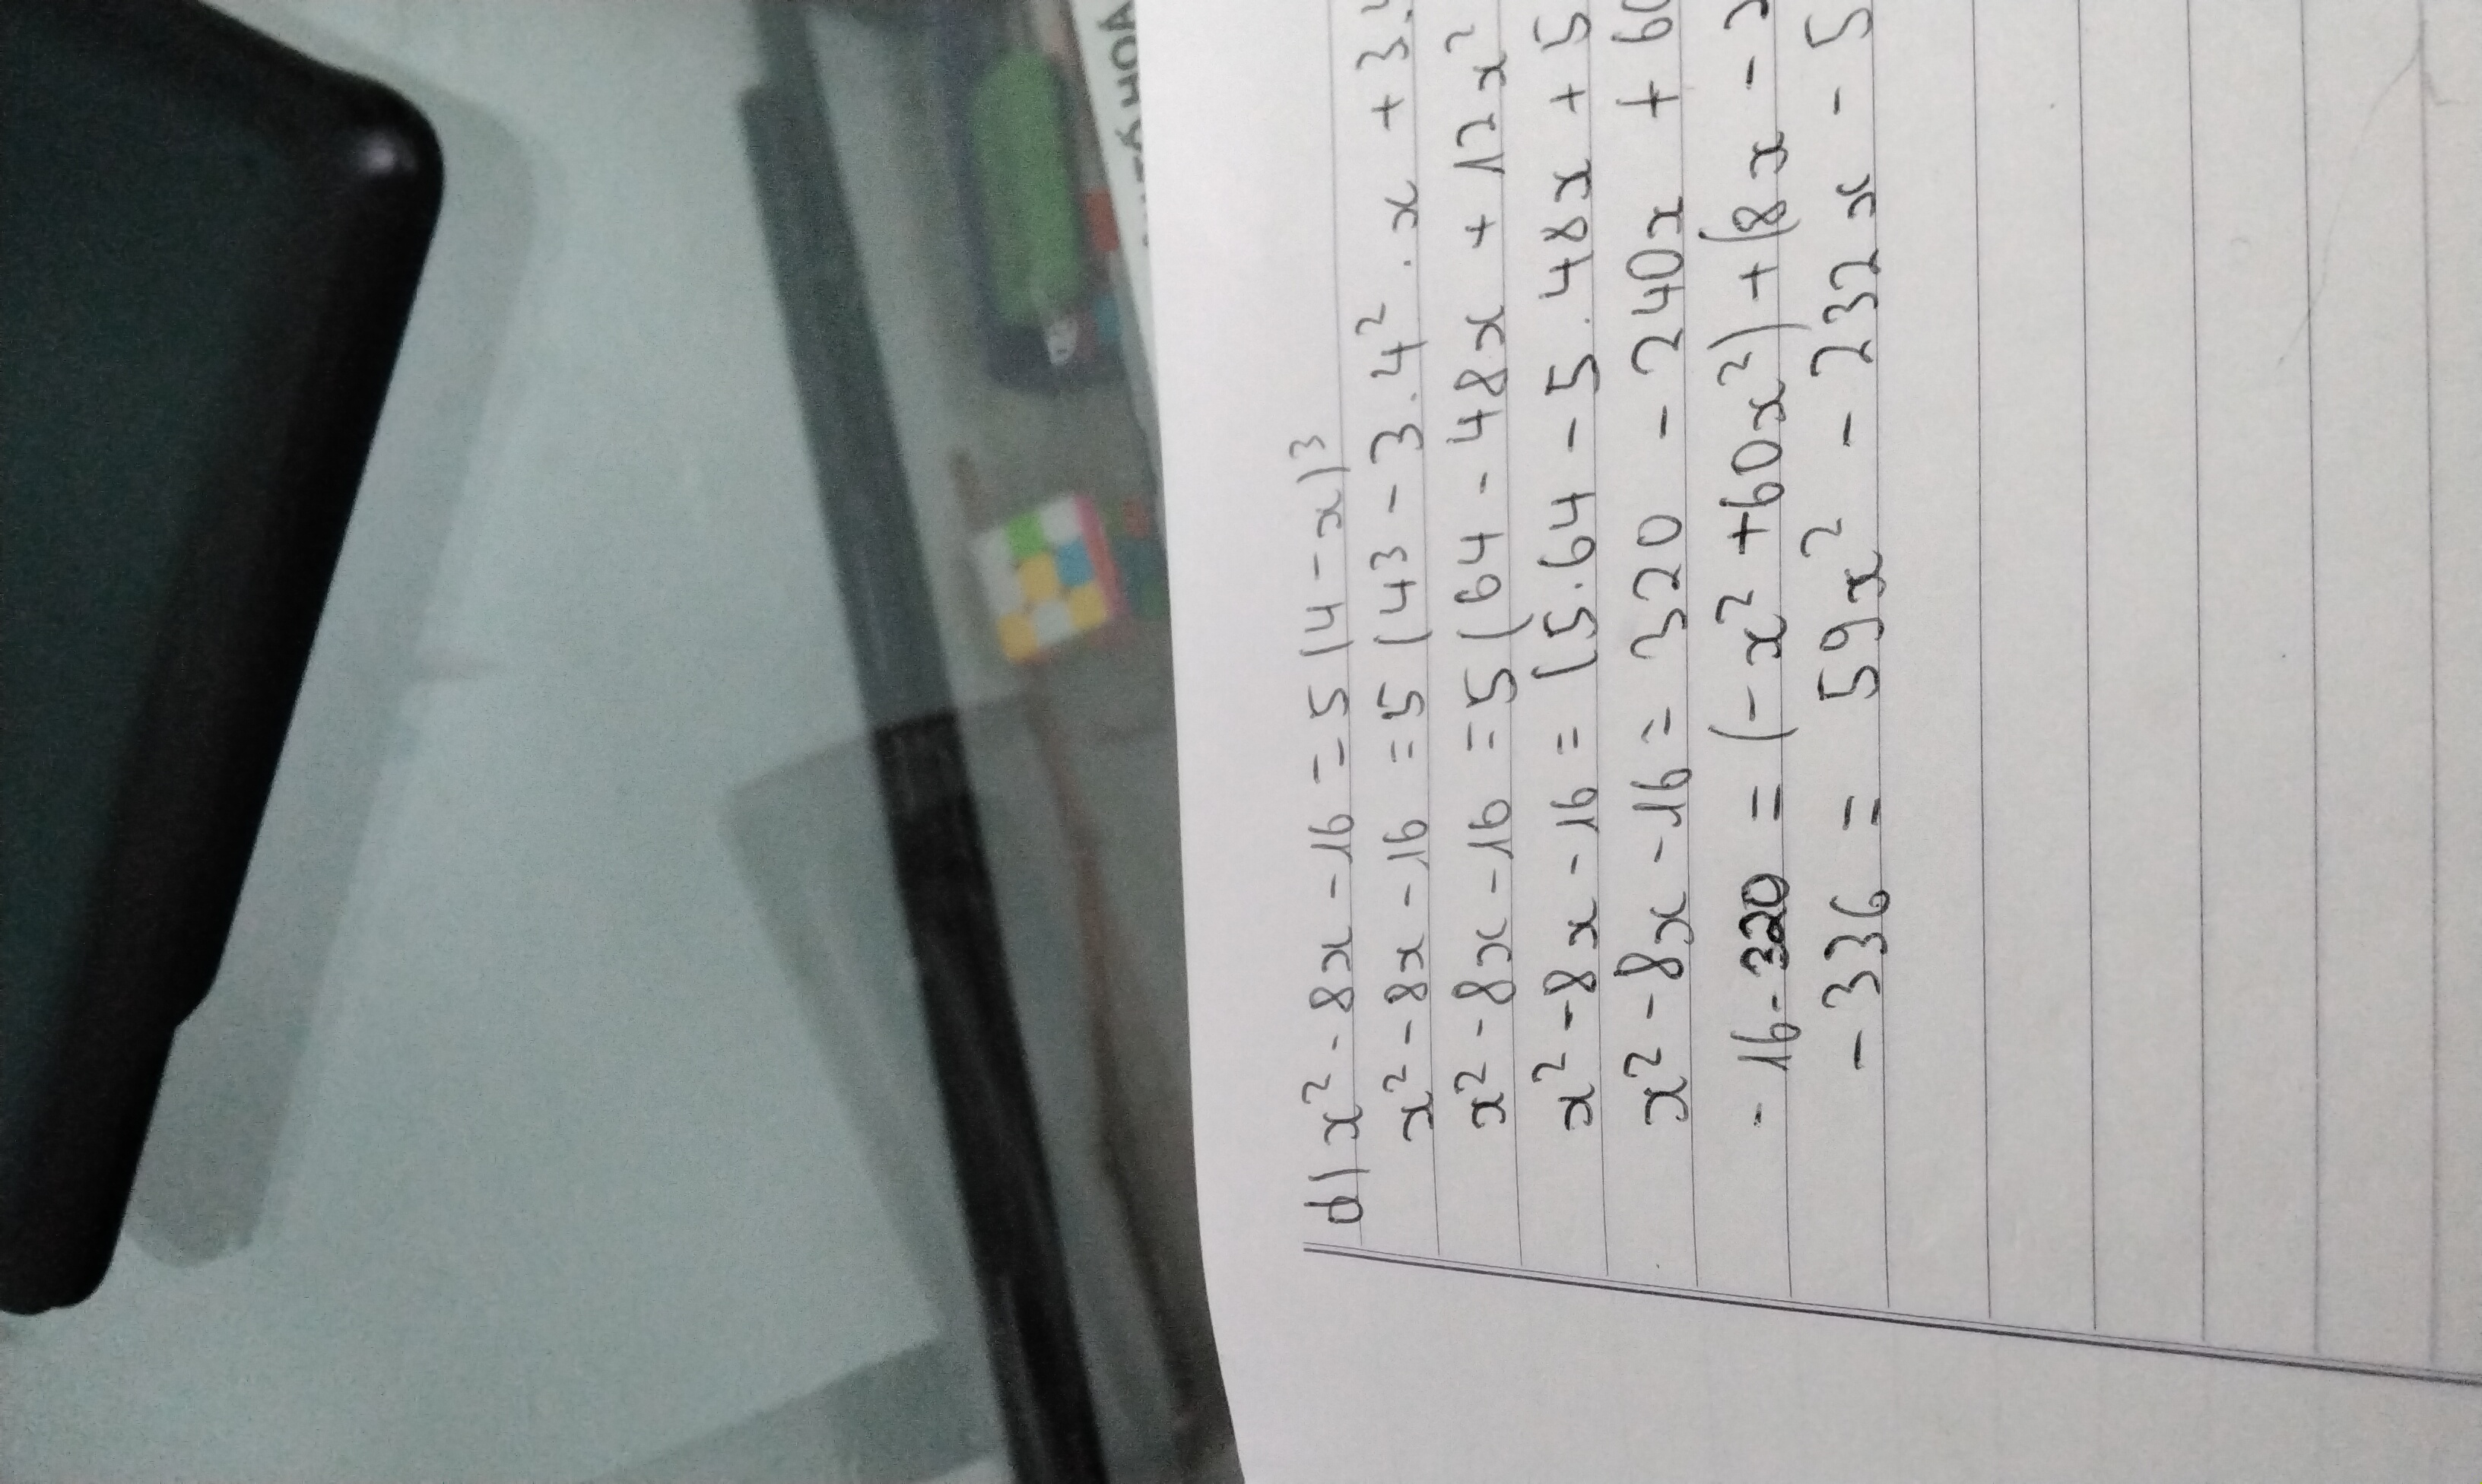 d) x² - 8x - 16 = 5(4-x)³
x² - 8x - 16 = 5(4³ - 3.4².x + 3.
x² - 8x - 16 = 5(64 - 48x + 12x²
x² - 8x - 16 = (5.64 - 5.48x + 5
x² - 8x - 16 = 320 - 240x + 60
- 16 - 320 = (-x² + 60x²) + (8x -
- 336 = 59x² - 232x - 5
HOA